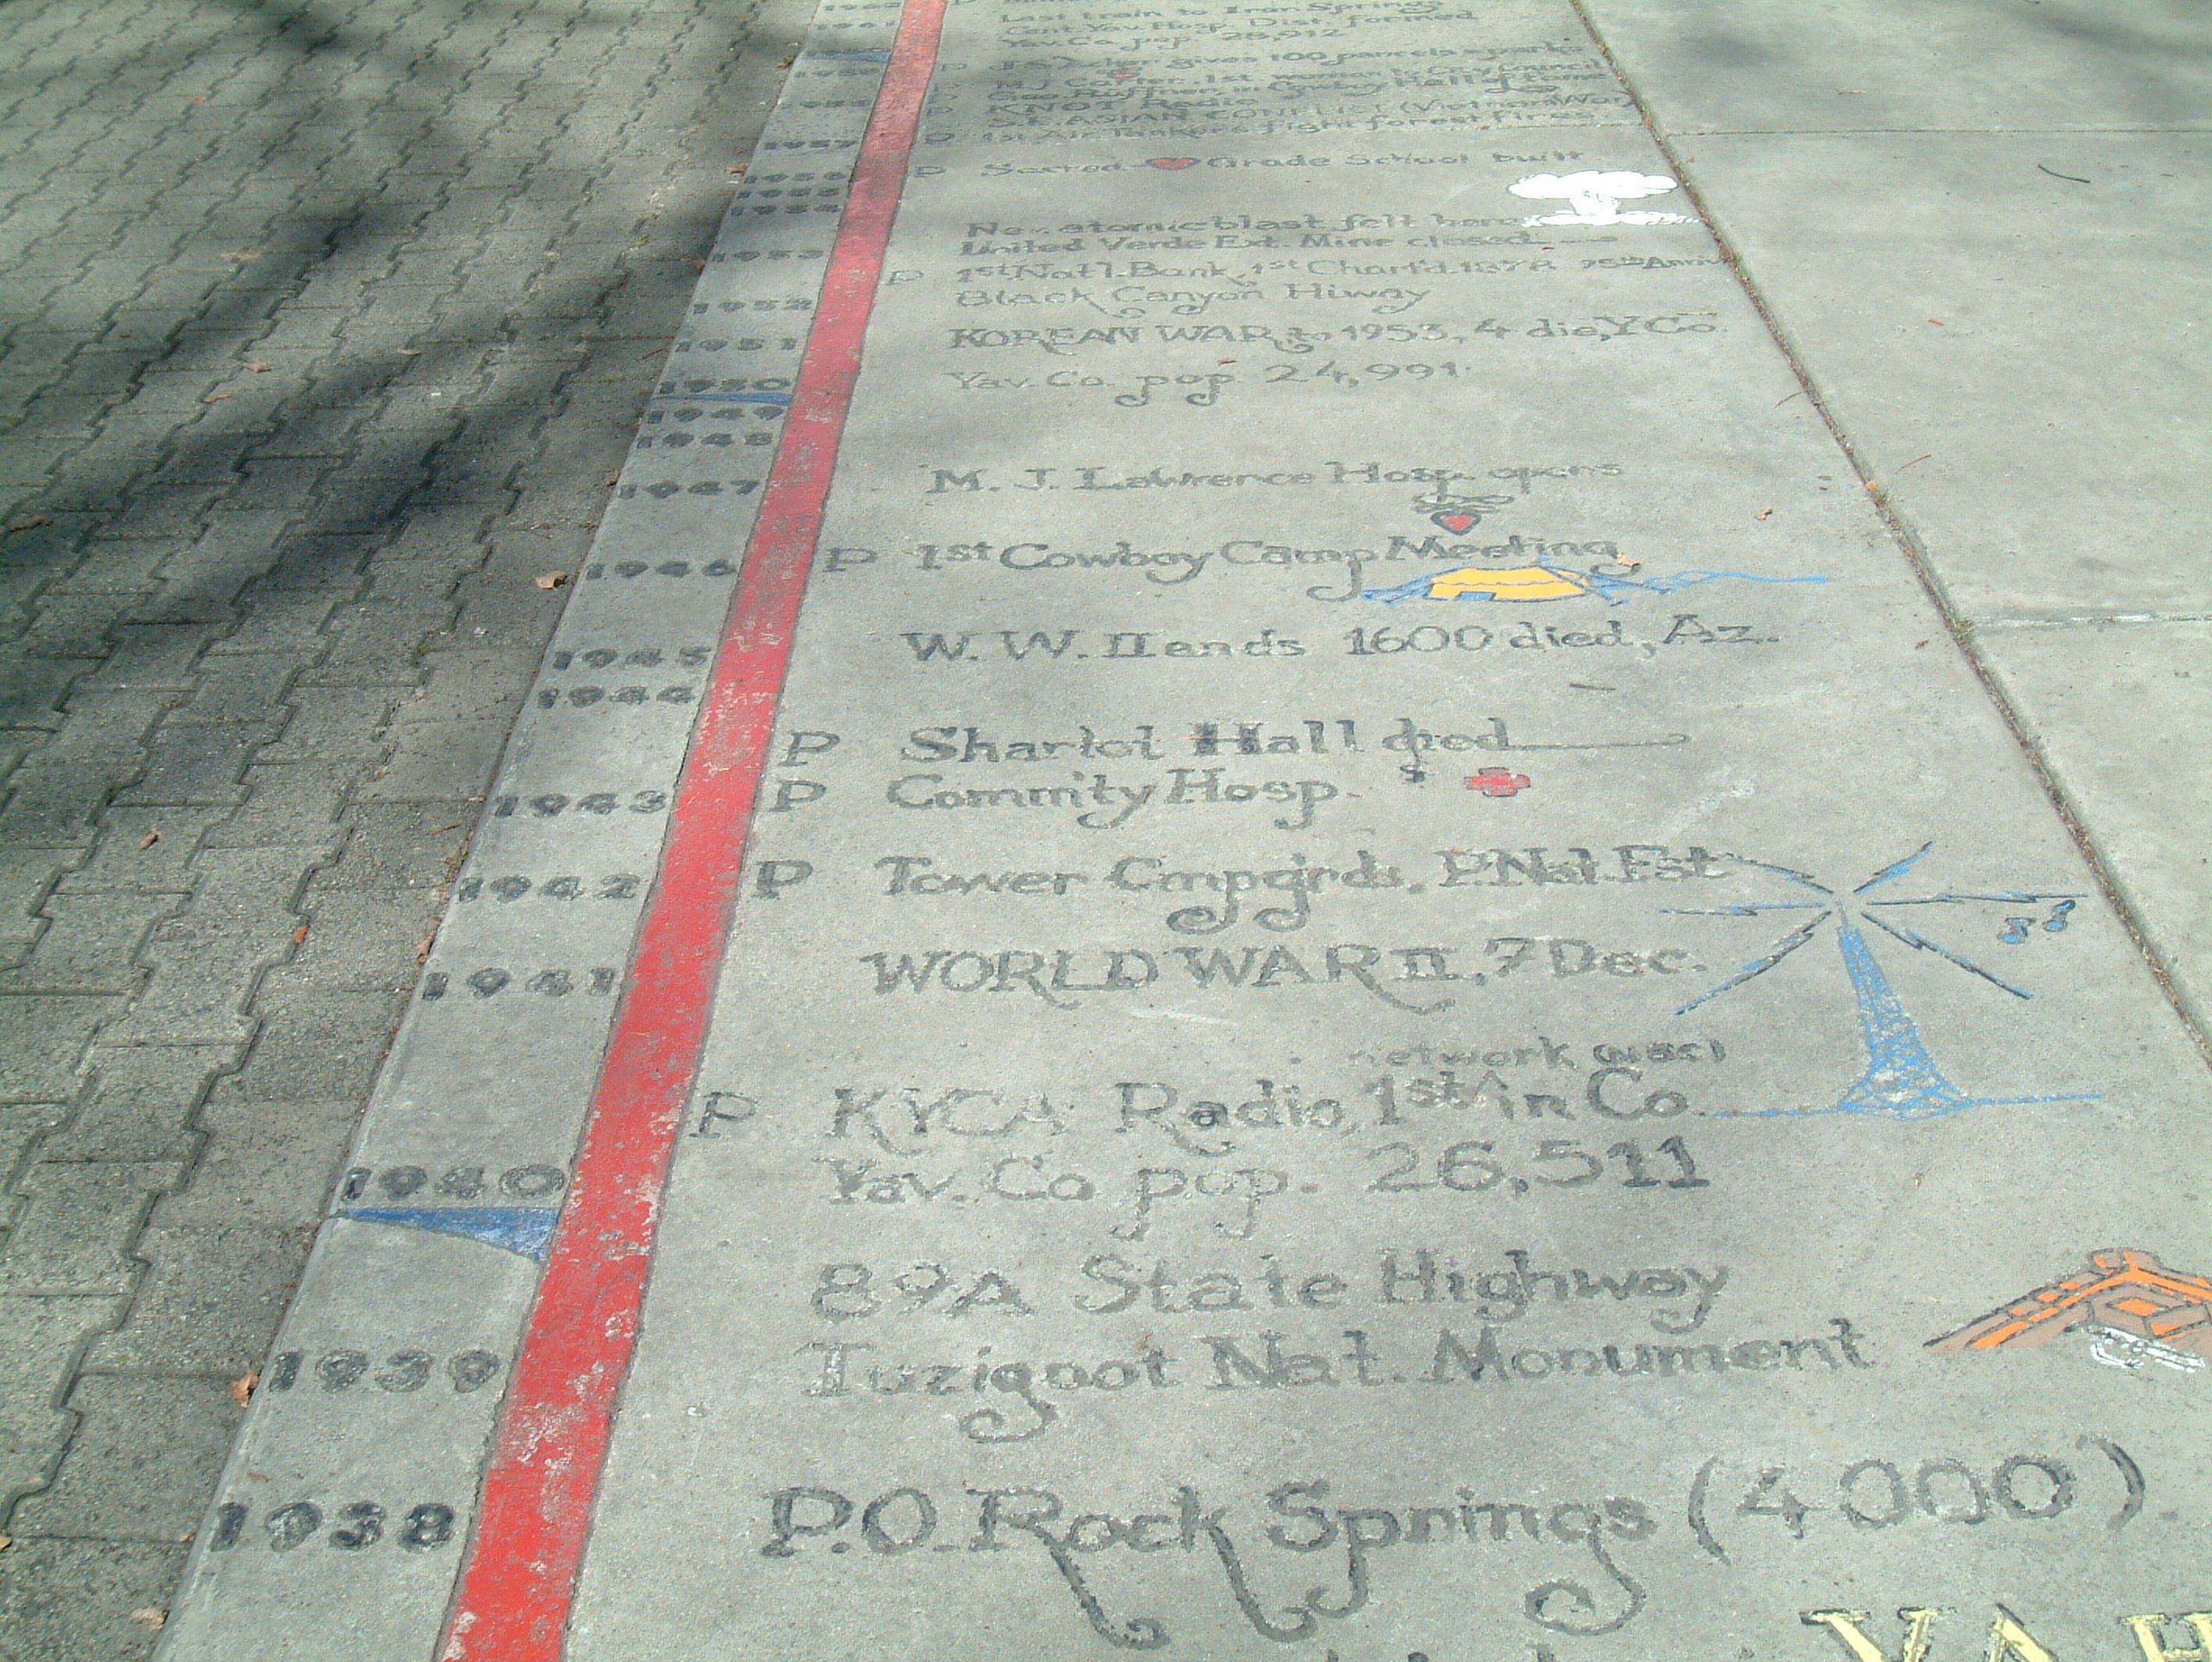 Last train to Iron Springs
Cent. Yav. Hosp. Dist. formed
Yav. Co. pop. 28,912
gives 100 parcels = parks
1st woman City Council
in Cowboy Hall of Fame
KNOT Radio
S.E. ASIAN CONFLICT (Vietnam War)
1957 P 1st Air Tankers fight forest fires
1956 P Sacred Grade School built
1955
1954
Nev. atomic blast felt here
United Verde Ext. Mine closed
1953 P 1st Nat'l. Bank, 1st Chart'd. 1878 75th Anniv
1952 Black Canyon Hiway
1951 KOREAN WAR to 1953, 4 die, Y Co.
1950 Yav. Co. pop. 24,991
1949
1948
1947 M. J. Lawrence Hosp. opens
1946 P 1st Cowboy Camp Meeting
1945 W. W. II ends 1600 died, Az.
1944
P Sharlot Hall died
1943 P Commity Hosp.
1942 P Tower Cmpgrds. P. Nat. Fst
1941 WORLD WAR II, 7 Dec.
network (NBC)
P KYCA Radio, 1st ^ in Co.
1940 Yav. Co pop. 26,511
89A State Highway
1939 Tuzigoot Nat. Monument
1938 P.O. Rock Springs (4000)
YAH